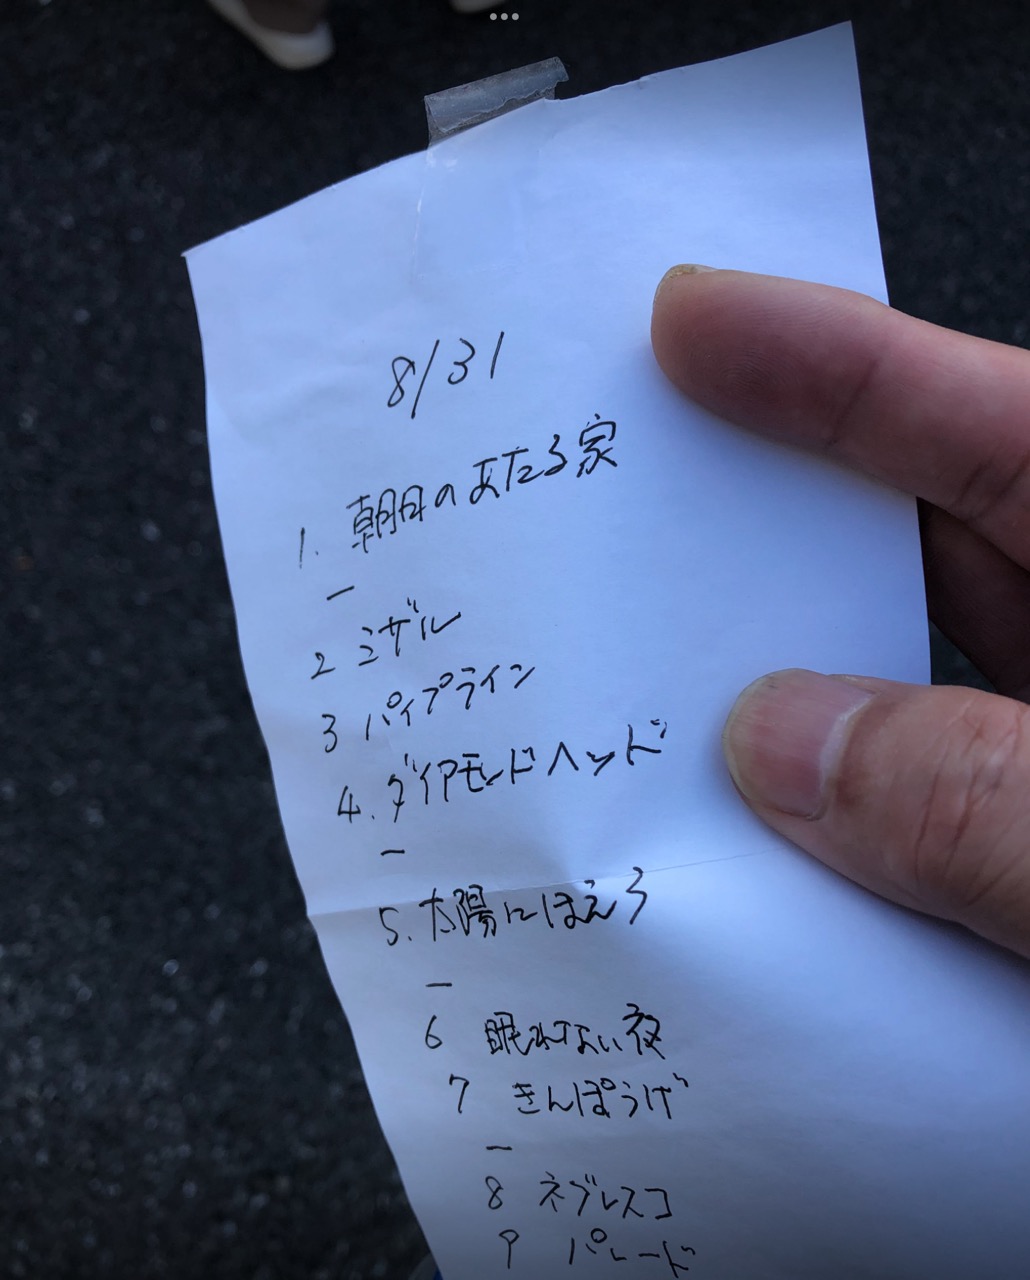 8/31
1. 朝日のあたる家
ー
2 ミザル
3 パイプライン
4. ダイアモンドヘッド
ー
5. 太陽にほえろ
ー
6 眠れない夜
7 きんぽうげ
ー
8 ネブレスコ
9 パレード